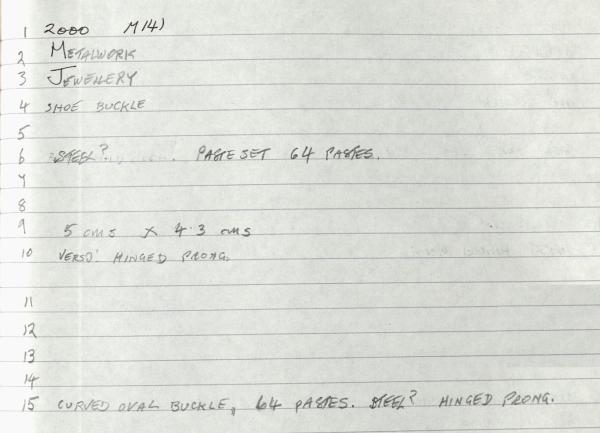 1 2000 M(4)
2 METALWORK
3 JEWELLERY
4 SHOE BUCKLE
5
6 STEEL? PASTE SET 64 PASTES.
7
8
9 5 cms X 4.3 cms
10 VERSO: HINGED PRONG.
11
12
13
14
15 CURVED OVAL BUCKLE, 64 PASTES. STEEL? HINGED PRONG.